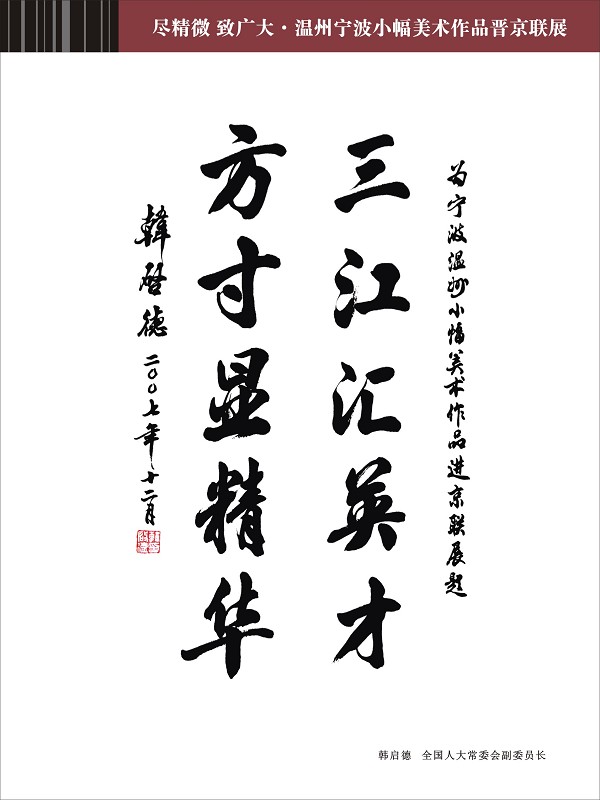 尽精微 致广大·温州宁波小幅美术作品晋京联展
为宁波温州小幅美术作品进京联展题
三江汇英才
方寸显精华
韓啓德 二〇〇七年十二月
韩启德 全国人大常委会副委员长